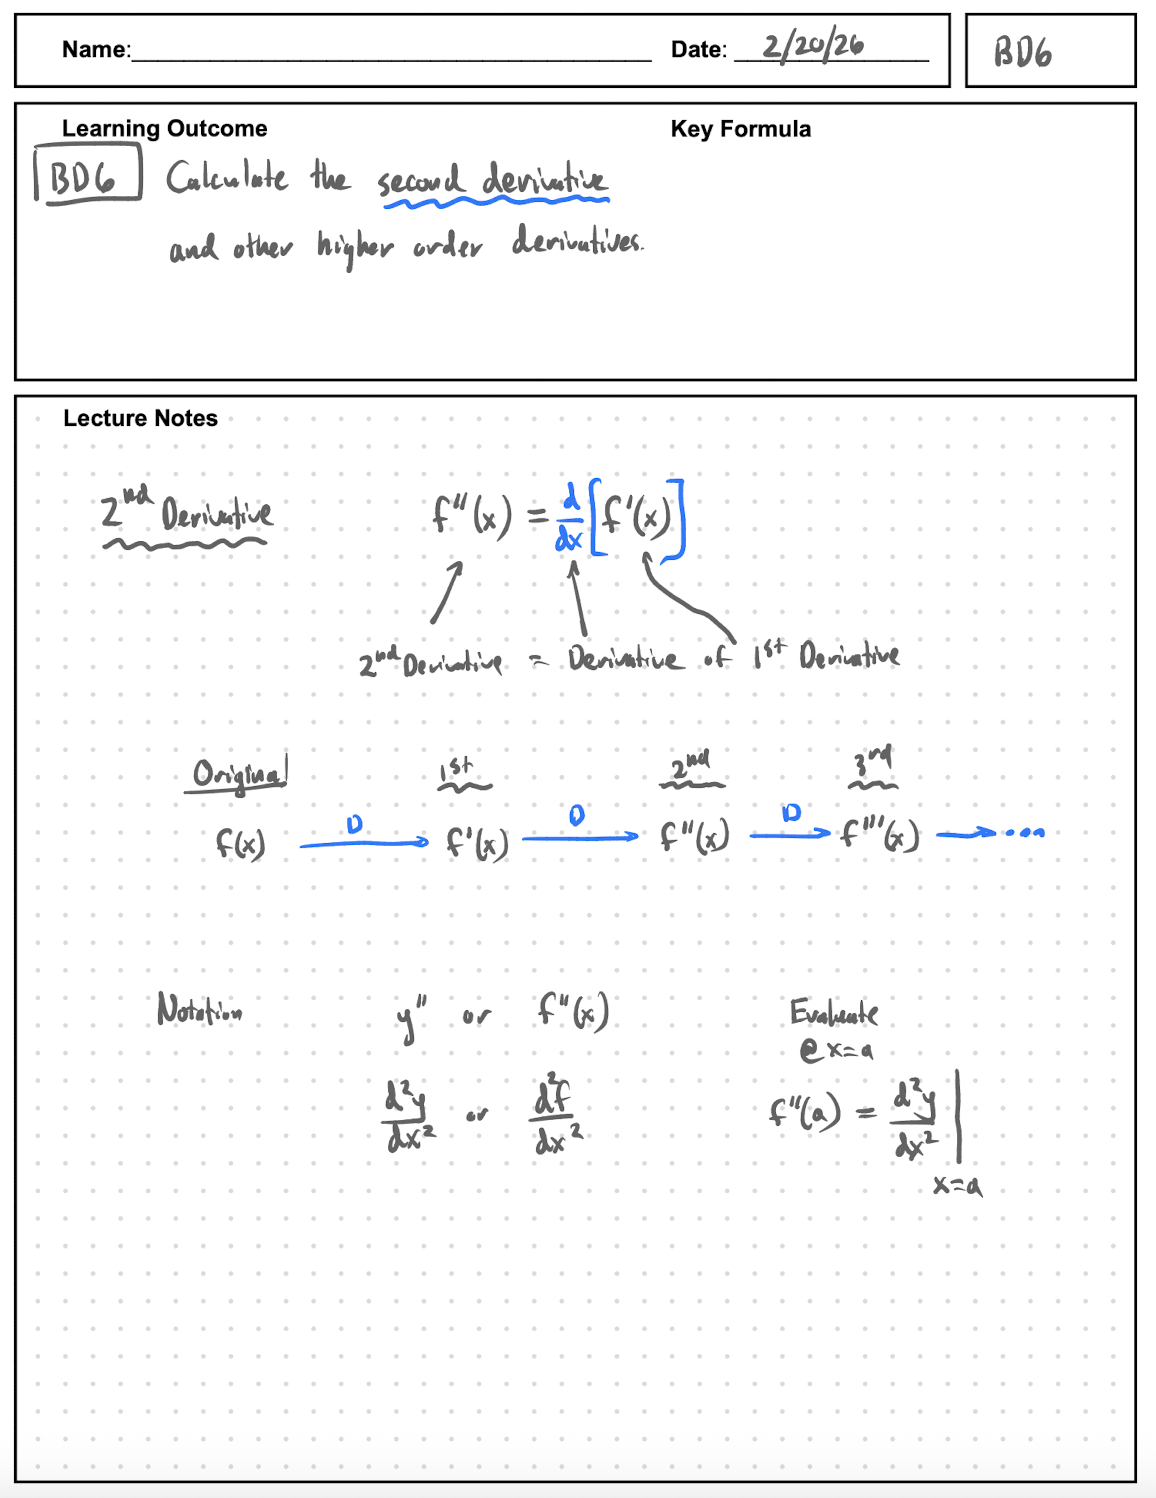 Name: Date: 2/20/26 BD6
Learning Outcome Key Formula
BD6 Calculate the second derivative
and other higher order derivatives.
Lecture Notes
2nd Derivative f''(x) = d/dx [f'(x)]
2nd Derivative = Derivative of 1st Derivative
Original 1st 2nd 3rd
f(x) D → f'(x) D → f''(x) D → f'''(x) → ...
Notation y'' or f''(x) Evaluate
@ x=a
d²y/dx² or d²f/dx² f''(a) = d²y/dx² |
x=a